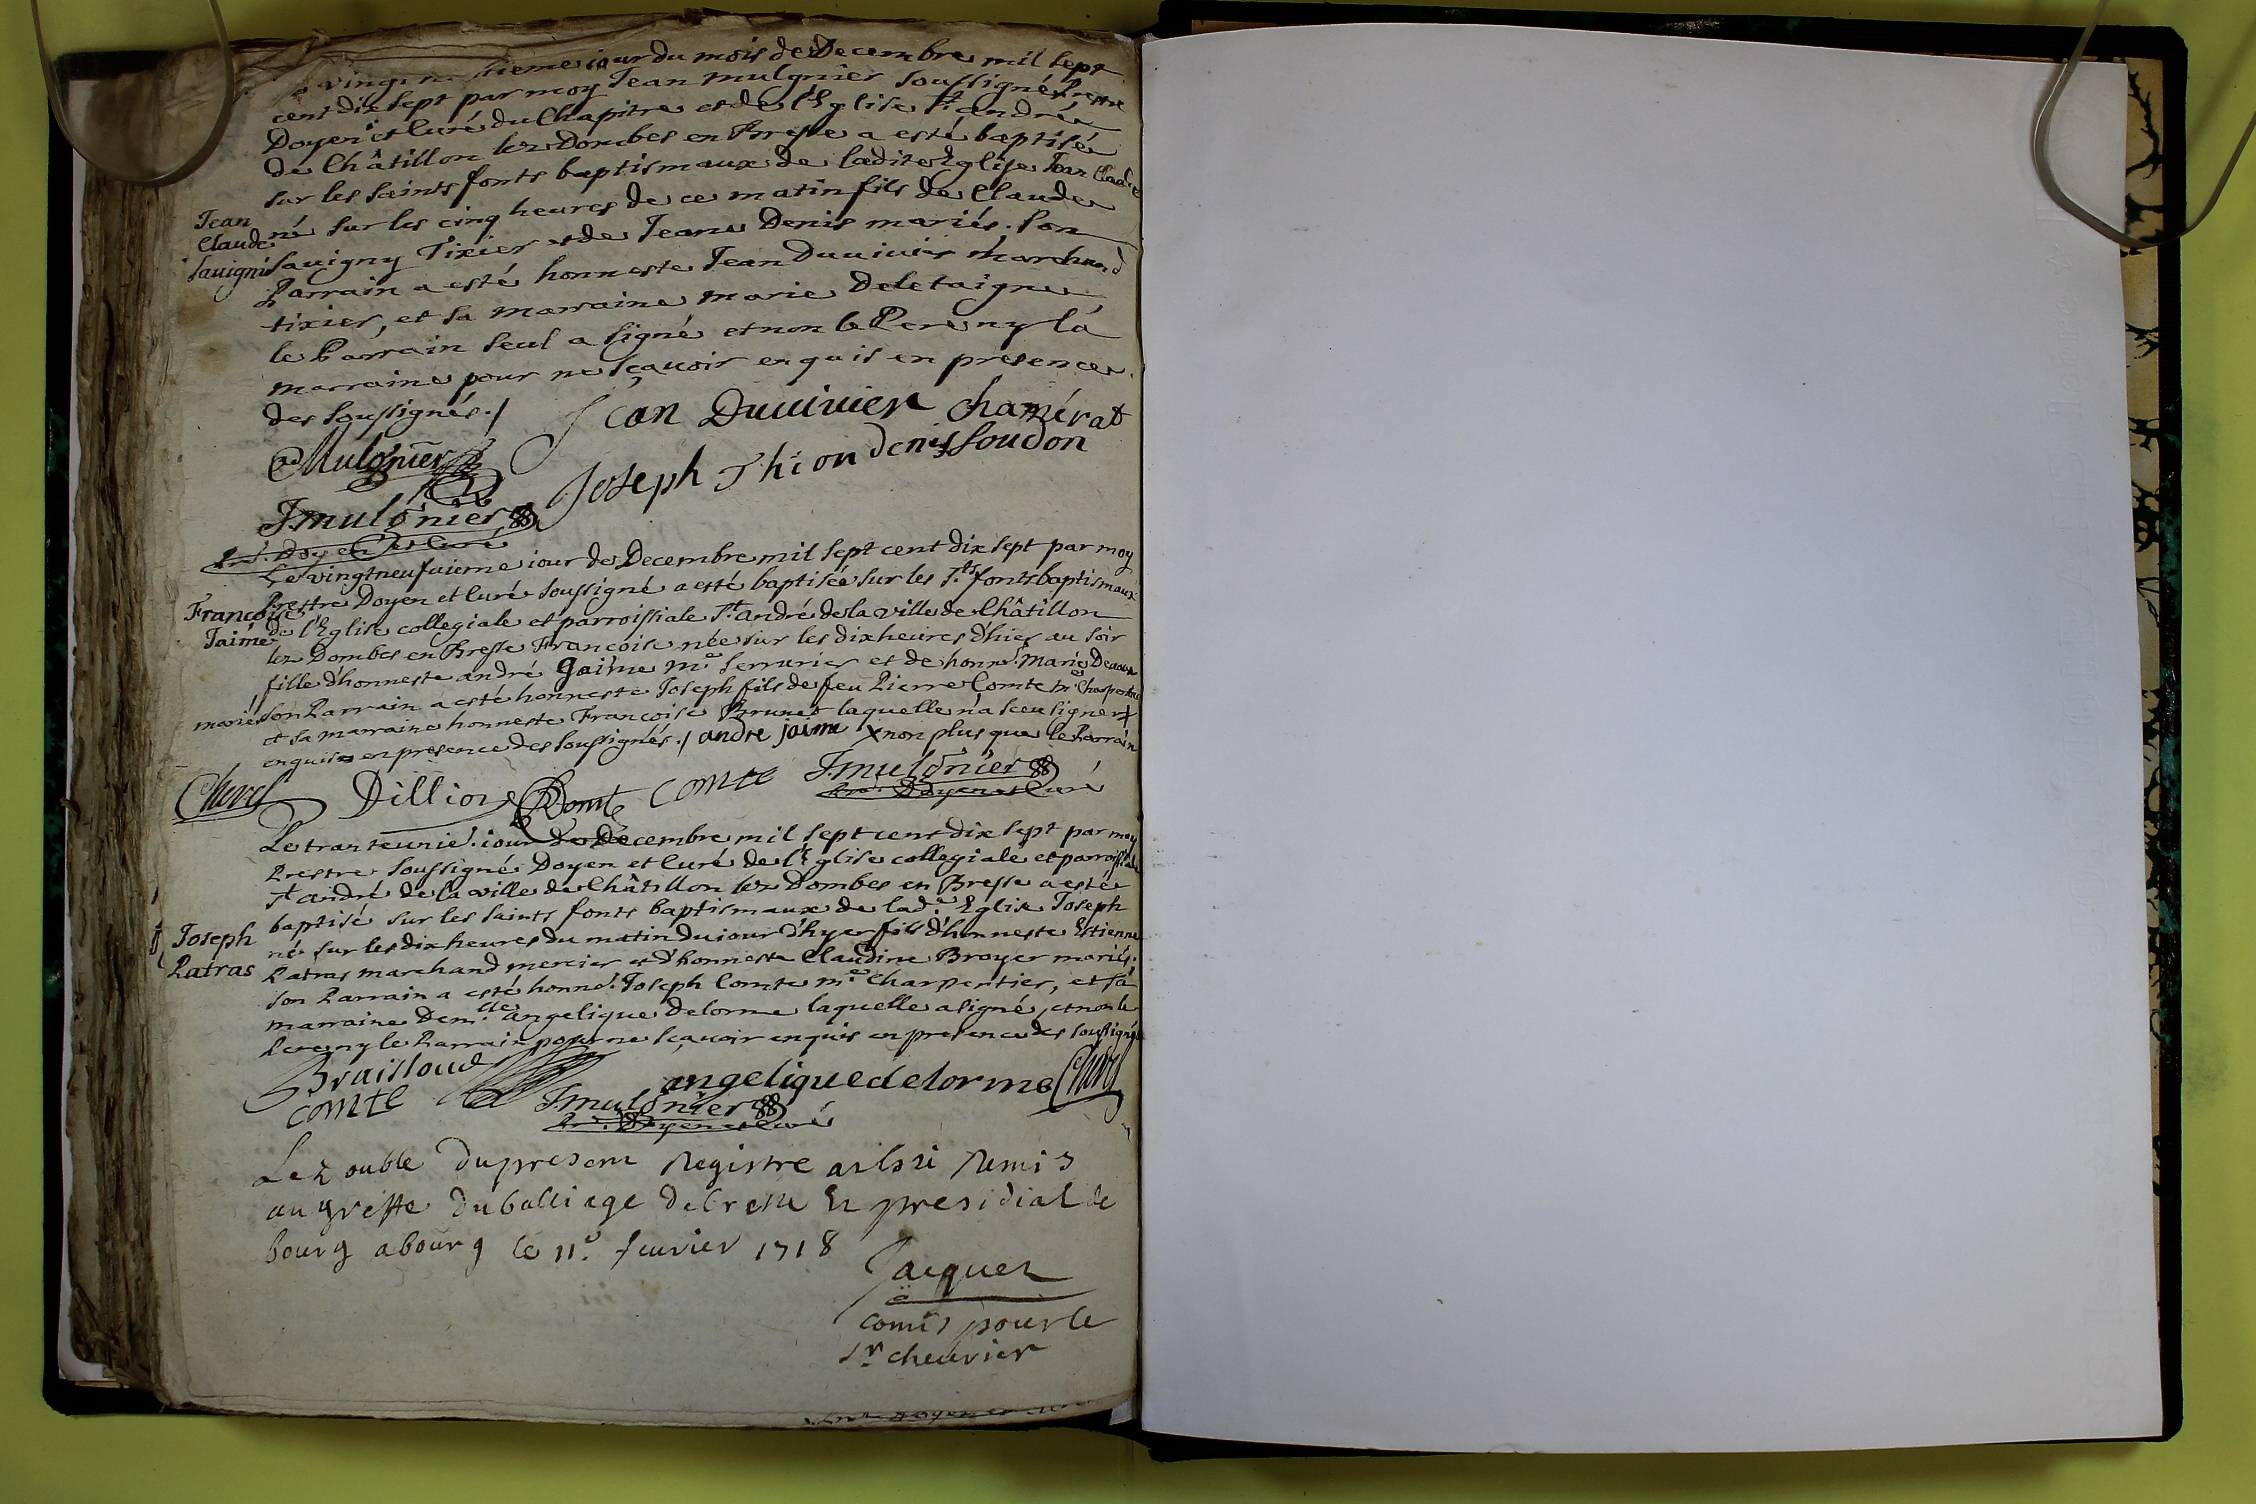 iour du mois de Decembre mil sept
cent dix sept par moy Jean mulgnier soussigné Prestre
Doyen et Curé du Chapitre et de l'Eglise St. andré
de Châtillon lez Dombes en Bresse a esté baptisé
sur les saints fonts baptismaux de ladite Eglise Jean Claude
Jean
Claude
Savigni
né sur les cinq heures de ce matin fils de Claude
Savigny Tixier et de Jeane Denis mariés. Son
Parrain a esté honneste Jean Duvivier marchand
tixier, et sa marraine marie Deletaigne
le Parrain seul a signé et non le Pere ny la
marraine pour ne sçavoir enquis en presence
des soussignés./
Jean Duvivier chamérat
Mulgnier
Joseph Thion denis soudon
J. mulgnier
pre. Doyen et Curé
Le vingtneufvieme iour de Decembre mil sept cent dix sept par moy
Prestre Doyen et Curé soussigné a esté baptisée sur les Sts. fonts baptismaux
Françoise
Jaime
de l'Eglise collegiale et parroissiale St. andré de la ville de Châtillon
lez Dombes en Bresse Françoise née sur les dix heures d'hier au soir
fille d'honneste andré Jaime me. serrurier et de honne. Marie
mariés
son Parrain a esté honneste Joseph fils de feu Pierre Comte me. Charpentier
et sa marraine honneste Françoise Brunet laquelle n'a sceu signer X
enquise en presence des soussignés./ andre jaime X non plus que le Parrain
Dillion comte J. mulgnier
pre. Doyen et Curé
Le tranteunie. iour de Decembre mil sept cent dix sept par moy
Prestre soussigné Doyen et Curé de l'Eglise collegiale et parroissiale
St. andré de la ville de Châtillon lez Dombes en Bresse a esté
baptisé sur les saints fonts baptismaux de lade. Eglise Joseph
Joseph
Patras
né sur les dix heures du matin du iour d'hyer fils d'honneste Estienne
Patras marchand mercier et d'honneste Claudine Broyer mariés.
son Parrain a esté honne. Joseph Comte me. Charpentier, et sa
marraine Demlle. angelique Delorme laquelle a signé, et non le
Pere ny le Parrain pour ne sçavoir enquis en presence des soussignés
Braissoud
angelique delorme
comte
J. mulgnier
pre. Doyen et Curé
Le double du present Registre a esté Remis
au greffe du balliage de bresse et presidial de
bourg a bourg le 11e. fevrier 1718
Jacquet
comis pour le
Sr. chevrier